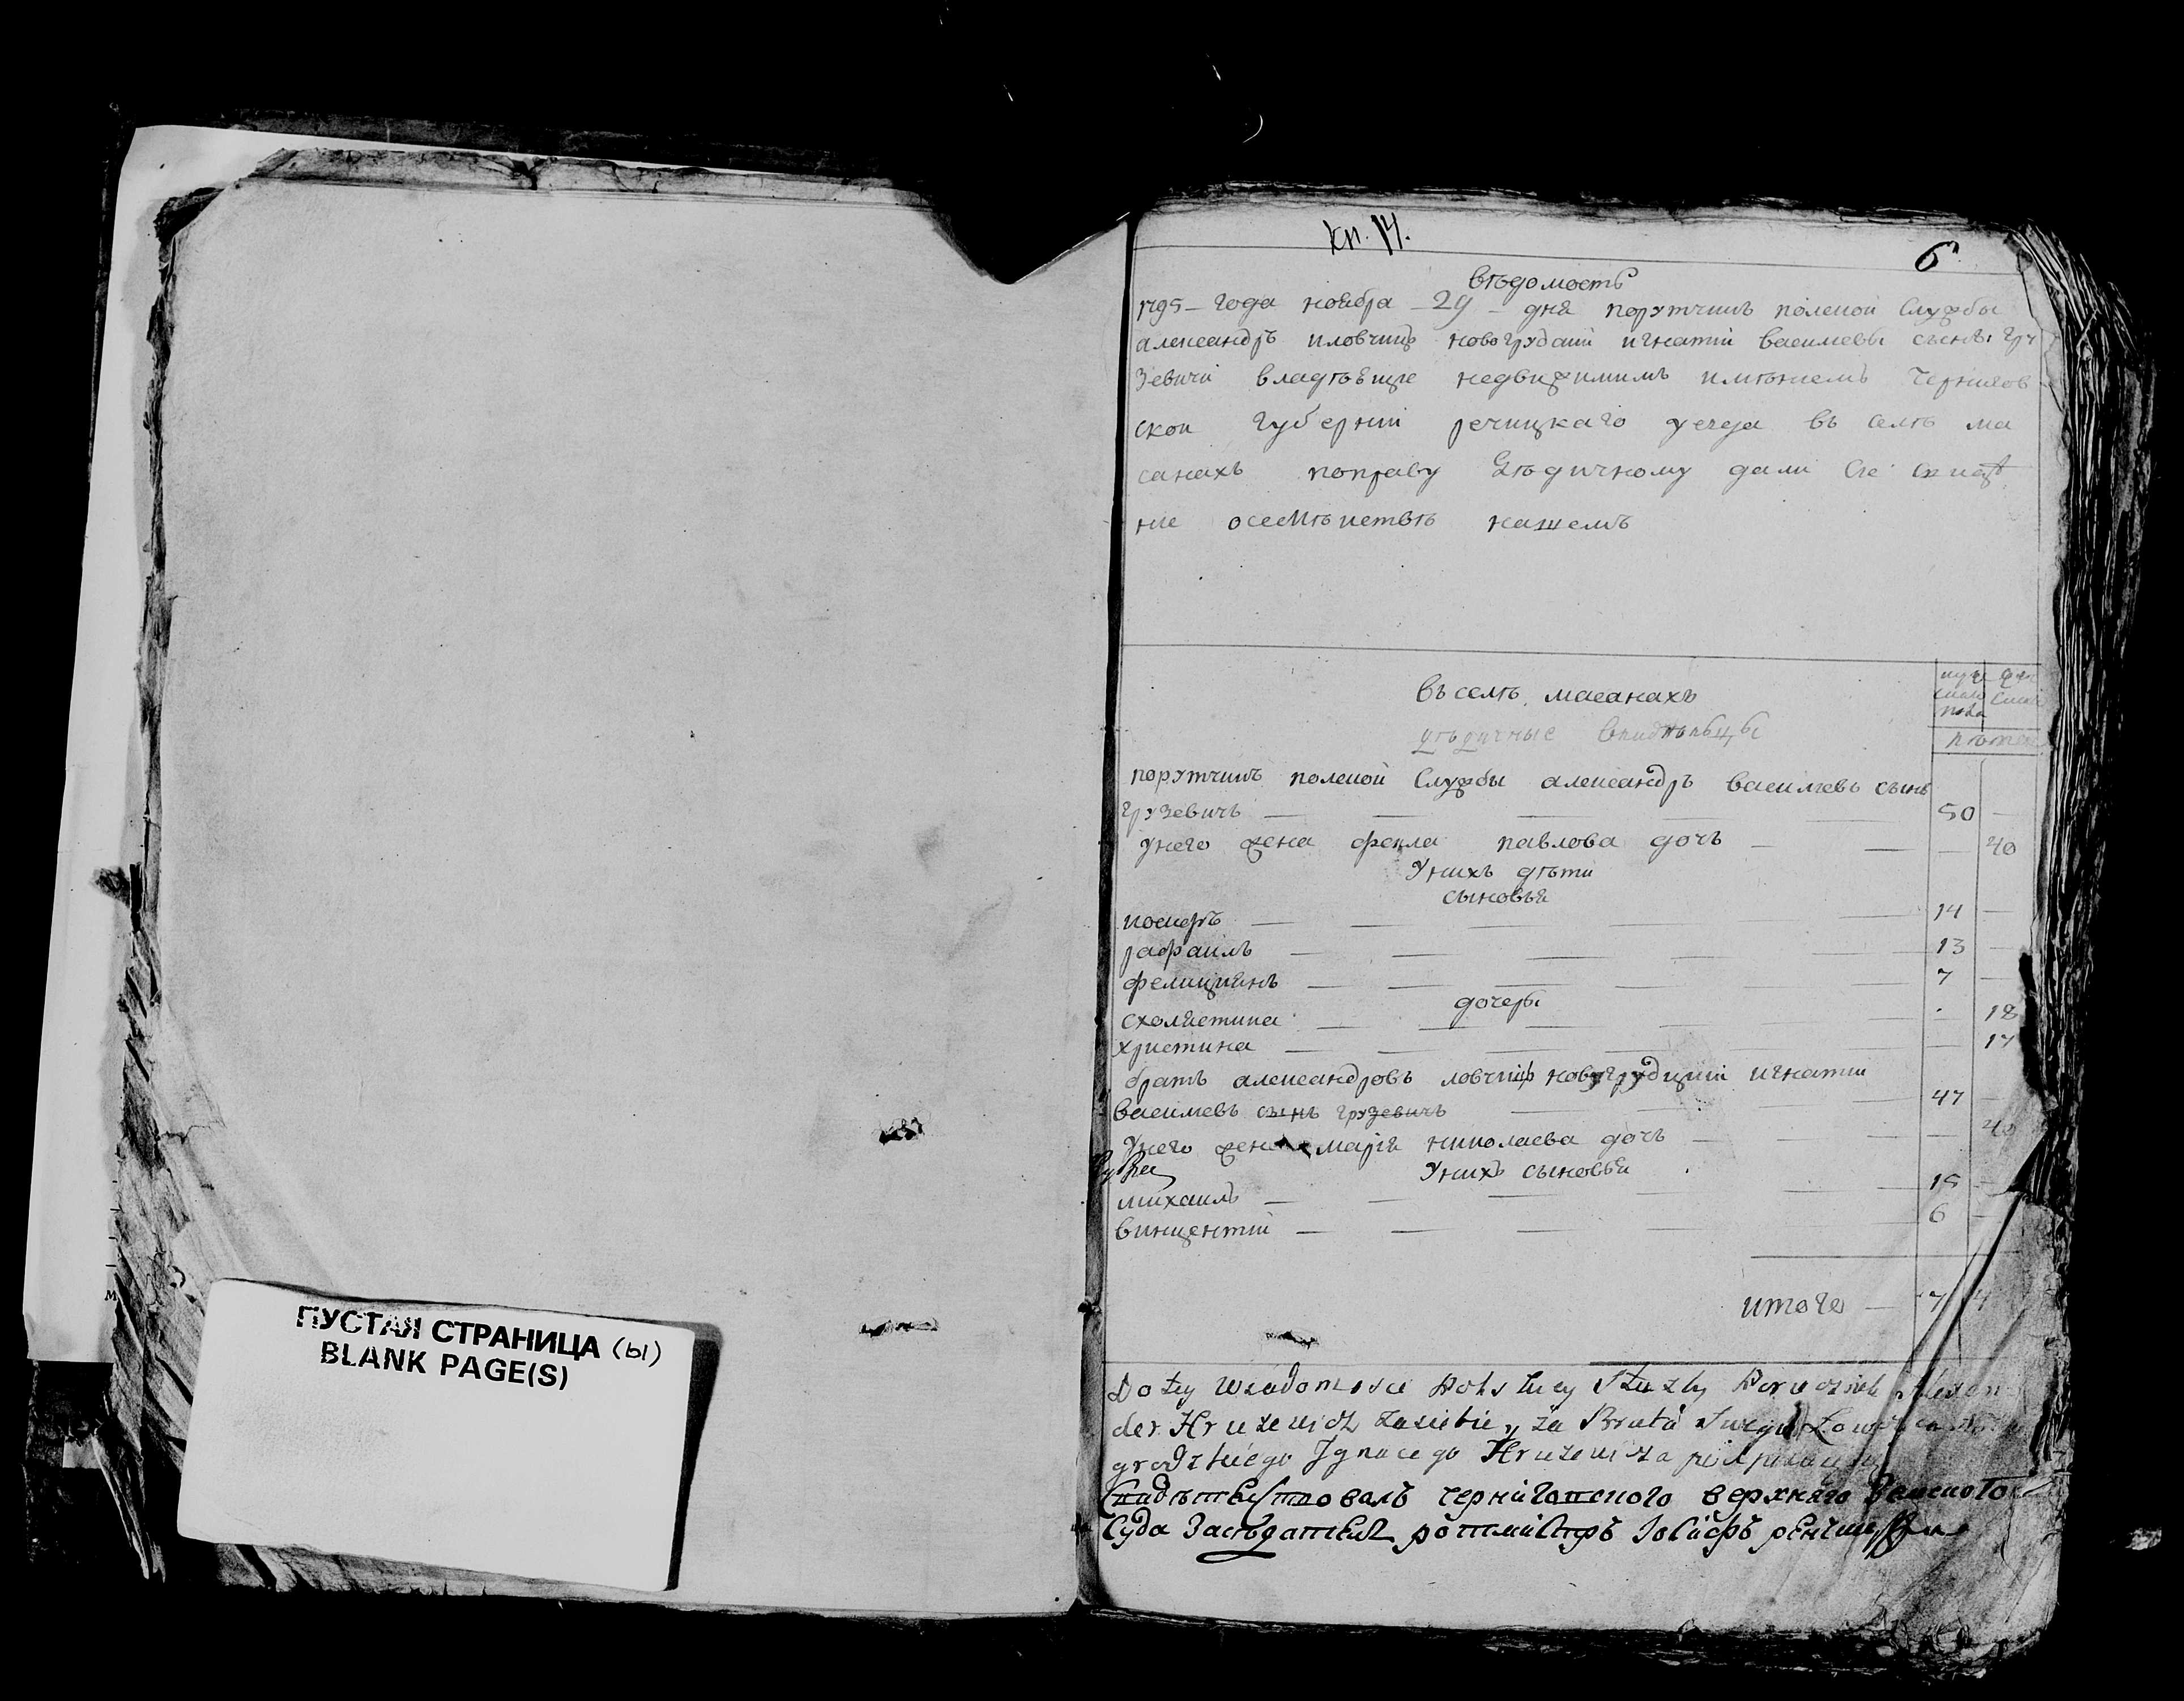 ПУСТАЯ СТРАНИЦА (ы)
BLANK PAGE(S)
кп. 14.
6
вѣдомость
1795 – года ноября – 29 – дня порутчикъ полской службы
александръ иловчицъ новогрудский игнатій василевы сыны гру
зевичи владѣющие недвижимимъ имѣнїемъ чернигов
ской губернїи речицкаго уезда въ селѣ ма
санахъ поправу дали сїе
нїе осемѣйствѣ нашемъ
въ селѣ масанахъ
порутчикъ полской службы александръ василевъ сынъ
грузевичъ — 50 —
унего жена фекла павлова дочь — 40
унихъ дѣти
сыновья
иосифъ — 14 —
рафаилъ — 13 —
фелициянъ — 7 —
дочеры
схолястика — 18
христина — 17
братъ александровъ ловчицъ новугрудцкий игнатий
василевъ сынъ грузевичъ — 47 —
унего жена марїя николаева дочь — 40
унихъ сыновья
михаилъ — 15 —
винцентїй — 6 —
итого — 7 4
Do tey wiadomosci Polskiey Służby Porucznik Alexan
der Hruzewicz za siebie y za Brata Swego Łowczego
grodzkiego Ignacego Hruzewicza
Свидѣтелствовалъ черниговского верхняго Земского
Суда Засѣдатель ротмистръ Іосифъ